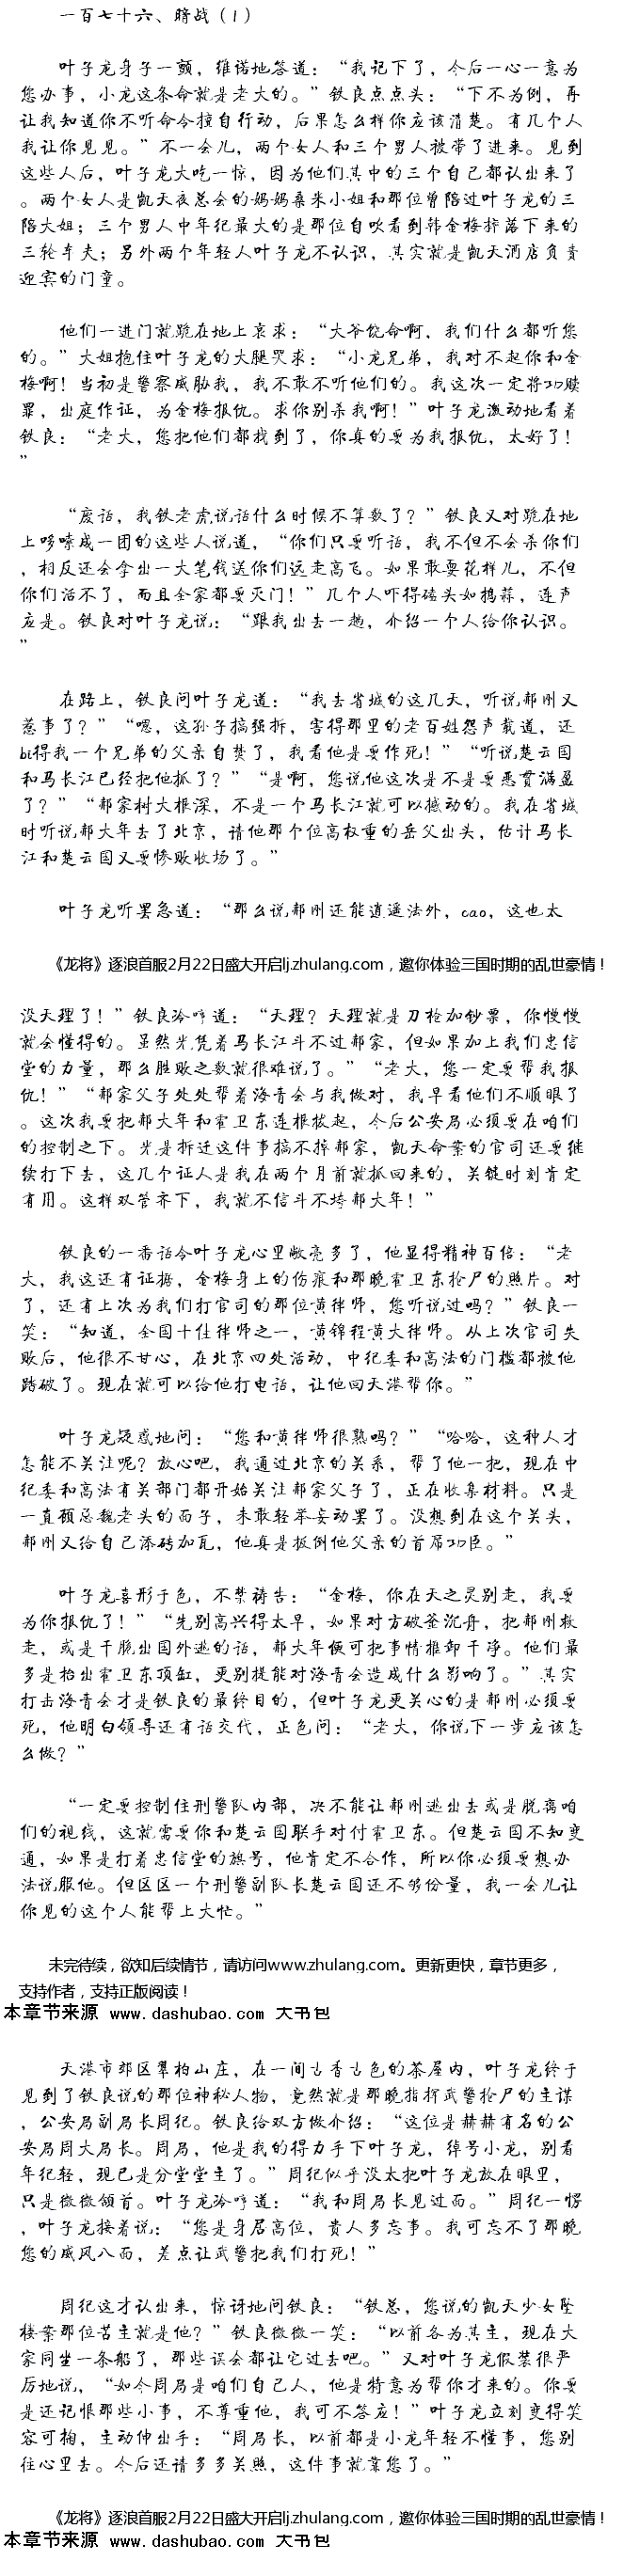 一百七十六、暗战（1）
叶子龙身子一颤，维诺地答道：“我记下了，今后一心一意为
您办事，小龙这条命就是老大的。”铁良点点头：“下不为例，再
让我知道你不听命令擅自行动，后果怎么样你应该清楚。有几个人
我让你见见。”不一会儿，两个女人和三个男人被带了进来。见到
这些人后，叶子龙大吃一惊，因为他们其中的三个自己都认出来了
。两个女人是凯天夜总会的妈妈桑米小姐和那位曾陪过叶子龙的三
陪大姐；三个男人中年纪最大的是那位自吹看到韩金梅摔落下来的
三轮车夫；另外两个年轻人叶子龙不认识，其实就是凯天酒店负责
迎宾的门童。
他们一进门就跪在地上哀求：“大爷饶命啊，我们什么都听您
的。”大姐抱住叶子龙的大腿哭求：“小龙兄弟，我对不起你和金
梅啊！当初是警察威胁我，我不敢不听他们的。我这次一定将功赎
罪，出庭作证，为金梅报仇。求你别杀我啊！”叶子龙激动地看着
铁良：“老大，您把他们都找到了，你真的要为我报仇，太好了！
”
“废话，我铁老虎说话什么时候不算数了？”铁良又对跪在地
上哆嗦成一团的这些人说道，“你们只要听话，我不但不会杀你们
，相反还会拿出一大笔钱送你们远走高飞。如果敢耍花样儿，不但
你们活不了，而且全家都要灭门！”几个人吓得磕头如捣蒜，连声
应是。铁良对叶子龙说：“跟我出去一趟，介绍一个人给你认识。
”
在路上，铁良问叶子龙道：“我去省城的这几天，听说郝刚又
惹事了？”“嗯，这孙子搞强拆，害得那里的老百姓怨声载道，还
bi得我一个兄弟的父亲自焚了，我看他是要作死！”“听说楚云国
和马长江已经把他抓了？”“是啊，您说他这次是不是要恶贯满盈
了？”“郝家树大根深，不是一个马长江就可以撼动的。我在省城
时听说郝大年去了北京，请他那个位高权重的岳父出头，估计马长
江和楚云国又要惨败收场了。”
叶子龙听罢急道：“那么说郝刚还能逍遥法外，cao，这也太
《龙将》逐浪首服2月22日盛大开启lj.zhulang.com，邀你体验三国时期的乱世豪情！
没天理了！”铁良冷哼道：“天理？天理就是刀枪加钞票，你慢慢
就会懂得的。虽然光凭着马长江斗不过郝家，但如果加上我们忠信
堂的力量，那么胜败之数就很难说了。”“老大，您一定要帮我报
仇！”“郝家父子处处帮着海青会与我做对，我早看他们不顺眼了
。这次我要把郝大年和霍卫东连根拔起，今后公安局必须要在咱们
的控制之下。光是拆迁这件事搞不掉郝家，凯天命案的官司还要继
续打下去，这几个证人是我在两个月前就抓回来的，关键时刻肯定
有用。这样双管齐下，我就不信斗不垮郝大年！”
铁良的一番话令叶子龙心里敞亮多了，他显得精神百倍：“老
大，我这还有证据，金梅身上的伤痕和那晚霍卫东抢尸的照片。对
了，还有上次为我们打官司的那位黄律师，您听说过吗？”铁良一
笑：“知道，全国十佳律师之一，黄锦程黄大律师。从上次官司失
败后，他很不甘心，在北京四处活动，中纪委和高法的门槛都被他
踏破了。现在就可以给他打电话，让他回天港帮你。”
叶子龙疑惑地问：“您和黄律师很熟吗？”“哈哈，这种人才
怎能不关注呢？放心吧，我通过北京的关系，帮了他一把，现在中
纪委和高法有关部门都开始关注郝家父子了，正在收集材料。只是
一直顾忌魏老头的面子，未敢轻举妄动罢了。没想到在这个关头，
郝刚又给自己添砖加瓦，他真是扳倒他父亲的首席功臣。”
叶子龙喜形于色，不禁祷告：“金梅，你在天之灵别走，我要
为你报仇了！”“先别高兴得太早，如果对方破釜沉舟，把郝刚救
走，或是干脆出国外逃的话，郝大年便可把事情推卸干净。他们最
多是抬出霍卫东顶缸，更别提能对海青会造成什么影响了。”其实
打击海青会才是铁良的最终目的，但叶子龙更关心的是郝刚必须要
死，他明白领导还有话交代，正色问：“老大，你说下一步应该怎
么做？”
“一定要控制住刑警队内部，决不能让郝刚逃出去或是脱离咱
们的视线，这就需要你和楚云国联手对付霍卫东。但楚云国不知变
通，如果是打着忠信堂的旗号，他肯定不合作，所以你必须要想办
法说服他。但区区一个刑警副队长楚云国还不够份量，我一会儿让
你见的这个人能帮上大忙。”
未完待续，欲知后续情节，请访问www.zhulang.com。更新更快，章节更多，
支持作者，支持正版阅读！
本章节来源 www.dashubao.com 大书包
天港市郊区翠柏山庄，在一间古香古色的茶屋内，叶子龙终于
见到了铁良说的那位神秘人物，竟然就是那晚指挥武警抢尸的主谋
，公安局副局长周纪。铁良给双方做介绍：“这位是赫赫有名的公
安局周大局长。周局，他是我的得力手下叶子龙，绰号小龙，别看
年纪轻，现已是分堂堂主了。”周纪似乎没太把叶子龙放在眼里，
只是微微颔首。叶子龙冷哼道：“我和周局长见过面。”周纪一愣
，叶子龙接着说：“您是身居高位，贵人多忘事。我可忘不了那晚
您的威风八面，差点让武警把我们打死！”
周纪这才认出来，惊讶地问铁良：“铁总，您说的凯天少女坠
楼案那位苦主就是他？”铁良微微一笑：“以前各为其主，现在大
家同坐一条船了，那些误会都让它过去吧。”又对叶子龙假装很严
厉地说，“如今周局是咱们自己人，他是特意为帮你才来的。你要
是还记恨那些小事，不尊重他，我可不答应！”叶子龙立刻变得笑
容可掬，主动伸出手：“周局长，以前都是小龙年轻不懂事，您别
往心里去。今后还请多多关照，这件事就靠您了。”
《龙将》逐浪首服2月22日盛大开启lj.zhulang.com，邀你体验三国时期的乱世豪情！
本章节来源 www.dashubao.com 大书包